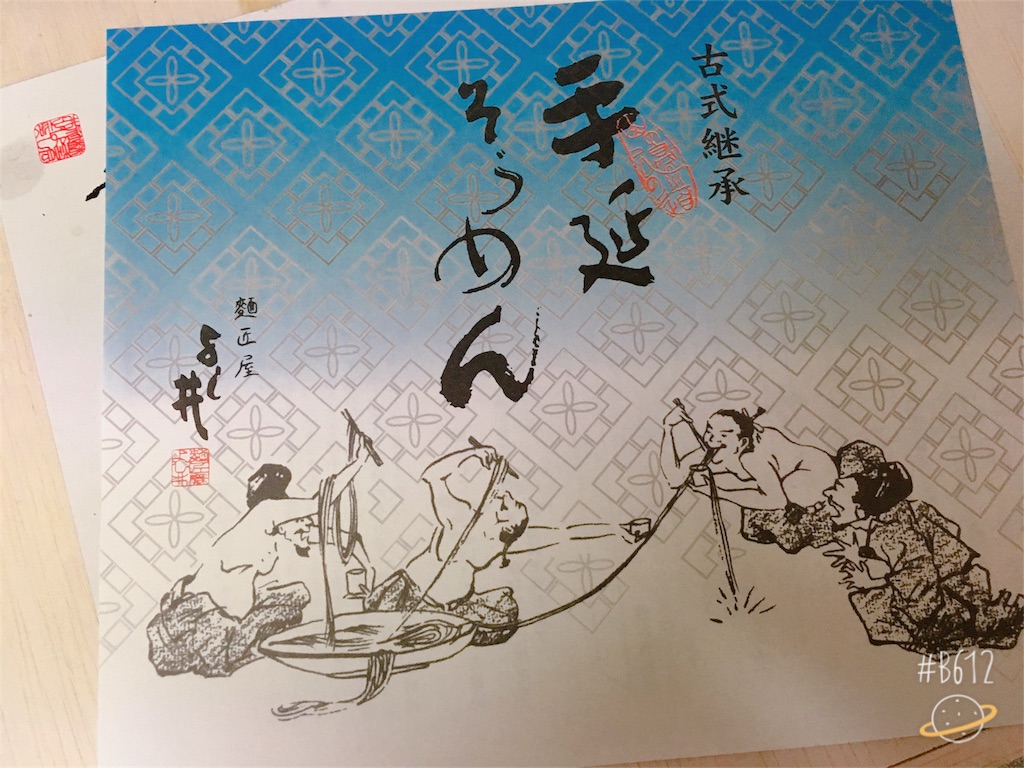 古式継承
手延
そうめん
麺匠屋
よし井
#B612